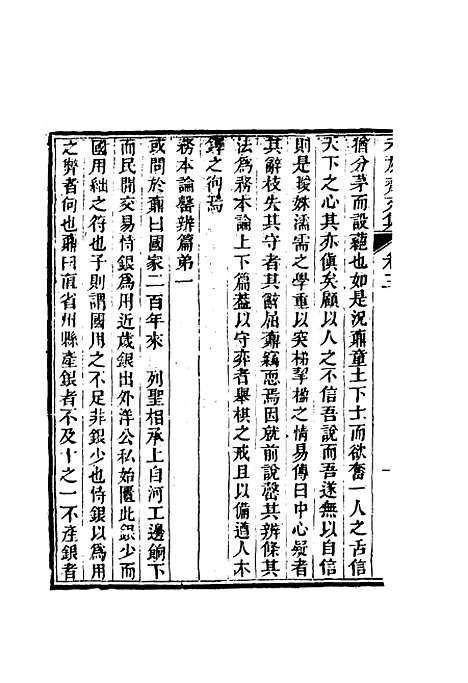 猶分茅而設蕝也如是況鼒童土下士而欲奮一人之舌信
天下之心其亦傎矣顧以人之不信吾說而吾遂無以自信
則是暖姝濡需之學重以突梯挈楹之情易傳曰中心疑者
其辭枝失其守者其辭屈鼒竊恧焉因就前說罄其辨條其
法為務本論上下篇蓋以守弈者舉棋之戒且以備遒人木
鐸之徇焉
務本論罄辨篇第一
或問於鼒曰國家二百年來　列聖相承上自河工邊餉下
而民間交易恃銀為用近歲銀出外洋公私始匱此銀少而
國用絀之符也子則謂國用之不足非銀少也恃銀以為用
之弊者何也鼒曰直省州縣產銀者不及十之一不產銀者